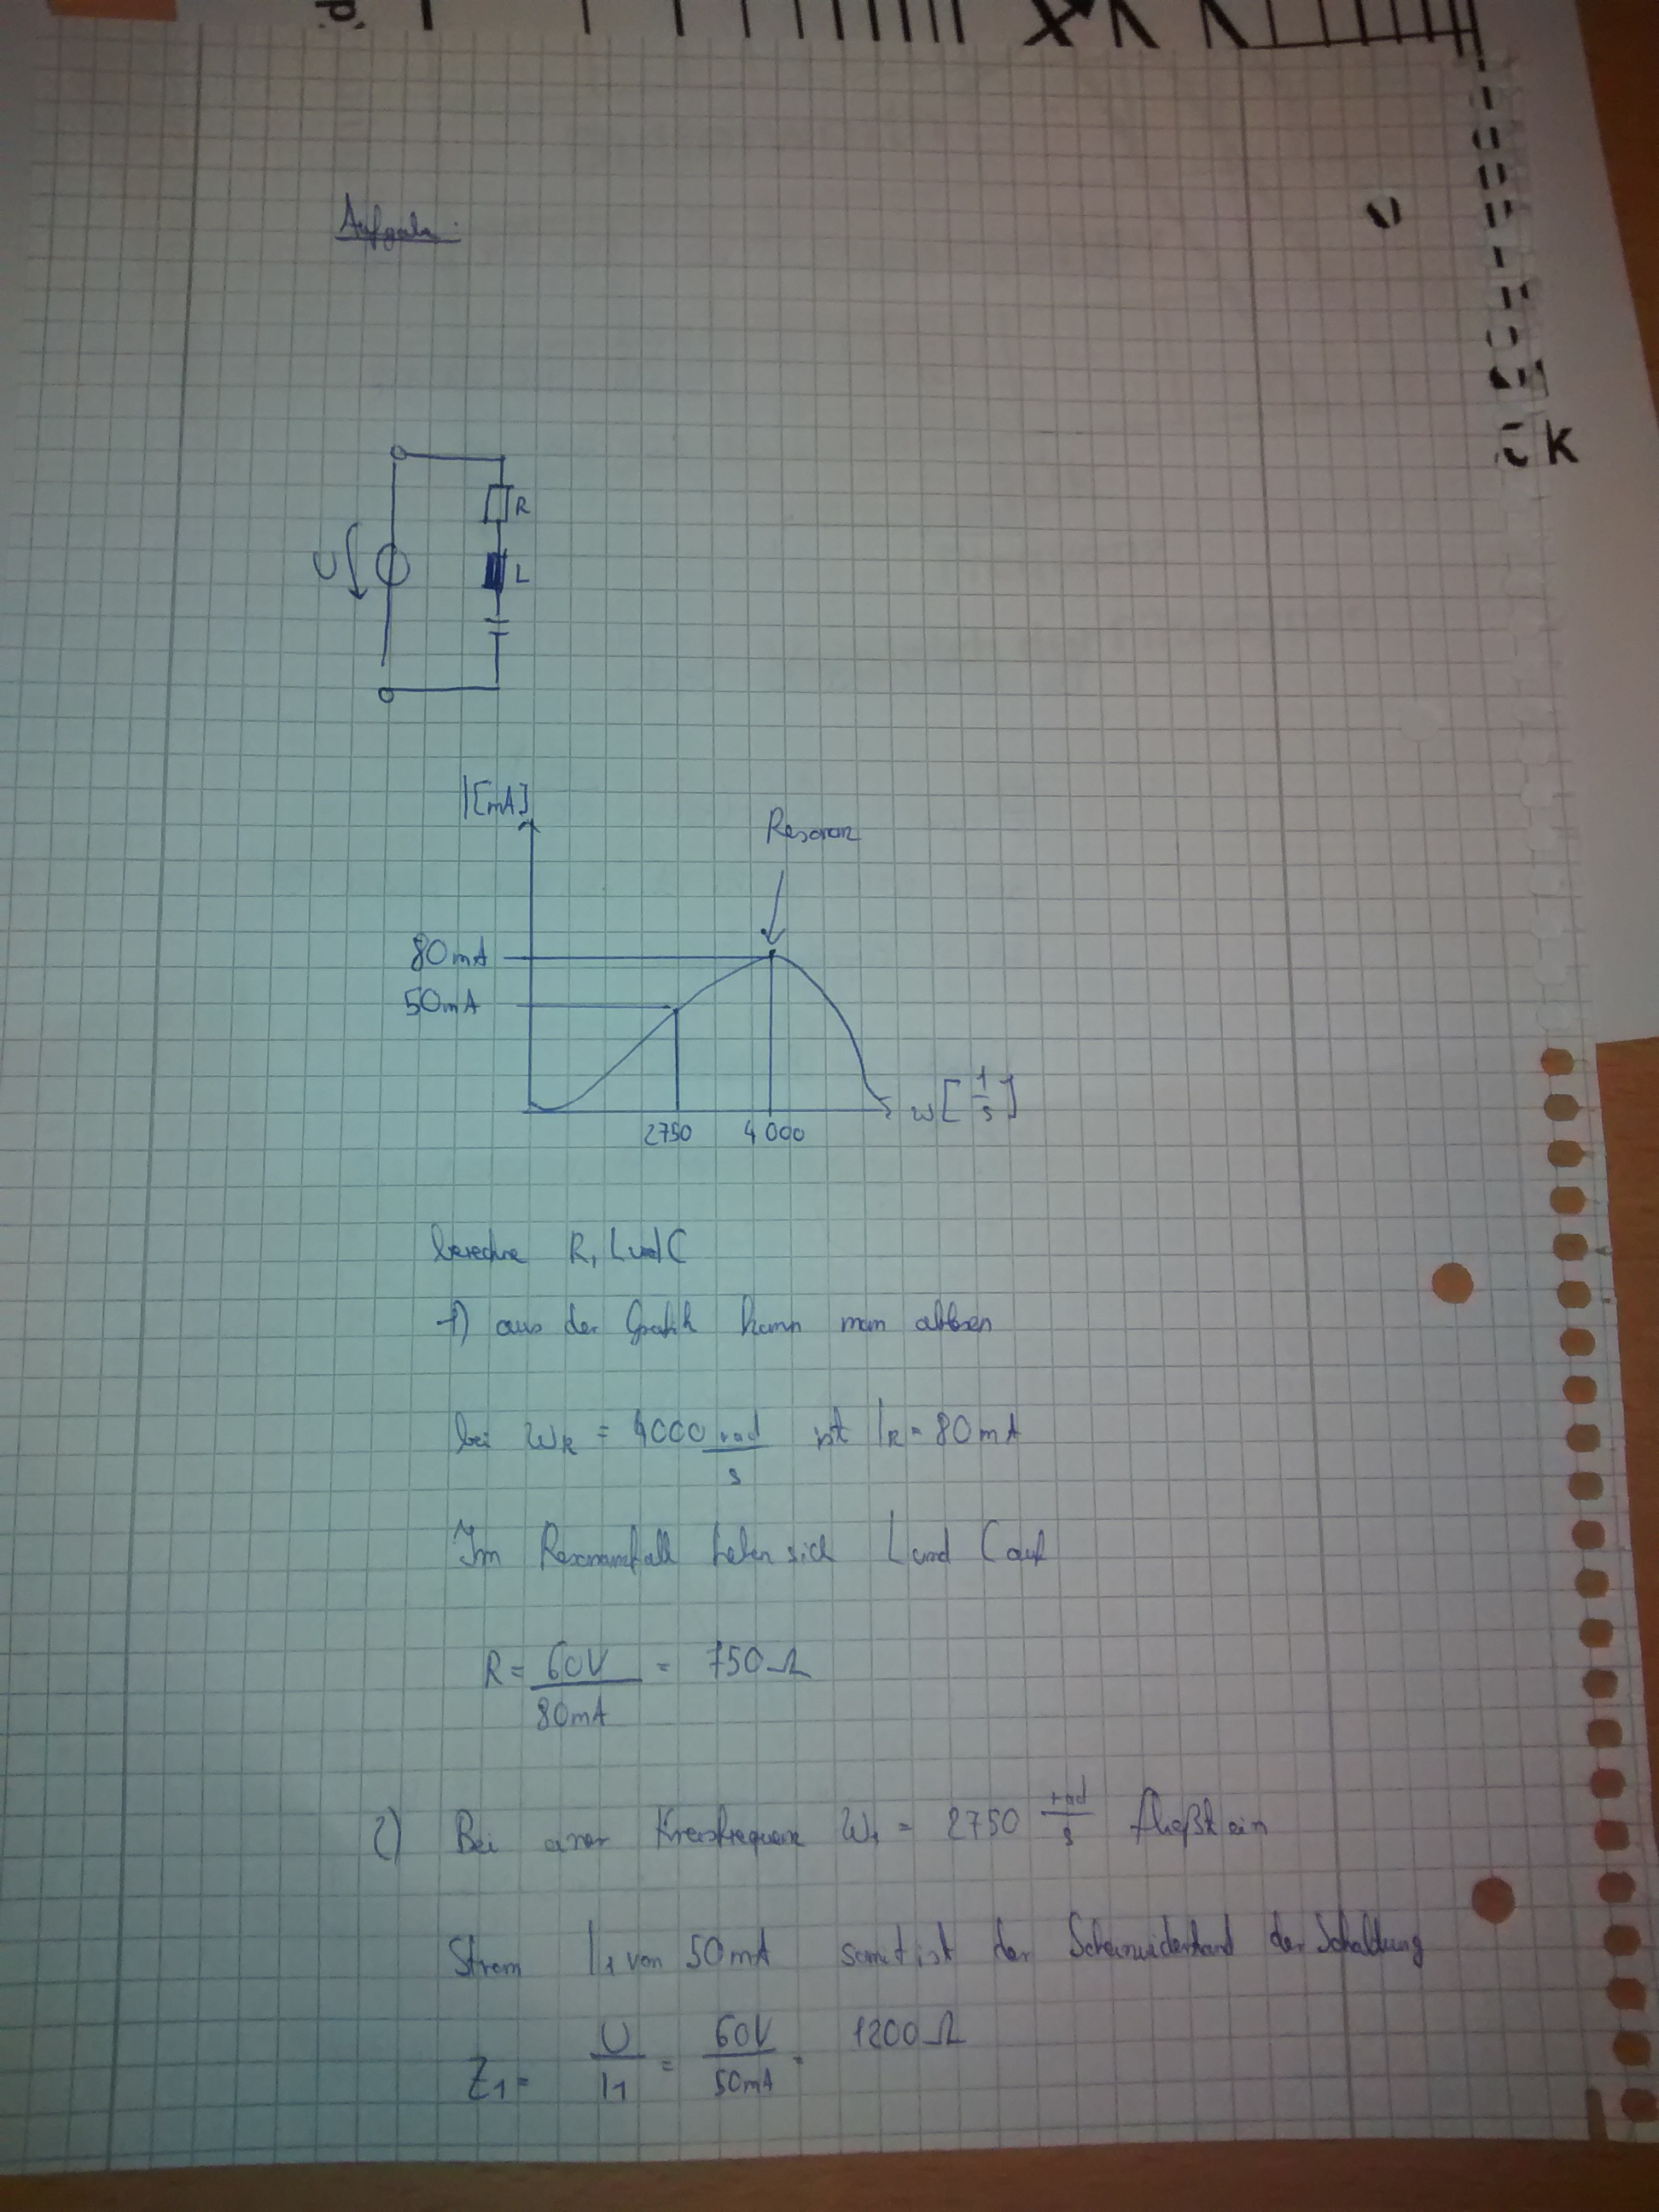 Aufgabe:
R
U
L
I[mA]
Resonanz
80mA
50mA
ω[1/s]
2750 4000
berechne R, L und C
1) aus der Grafik kann man ablesen
bei ωR = 4000 rad/s ist IR = 80mA
Im Resonanzfall heben sich L und C auf
R = 60V/80mA = 750Ω
2) Bei einer Kreisfrequenz ω1 = 2750 rad/s fließt ein
Strom I1 von 50mA somit ist der Scheinwiderstand der Schaltung
Z1 = U/I1 = 60V/50mA = 1200Ω
k